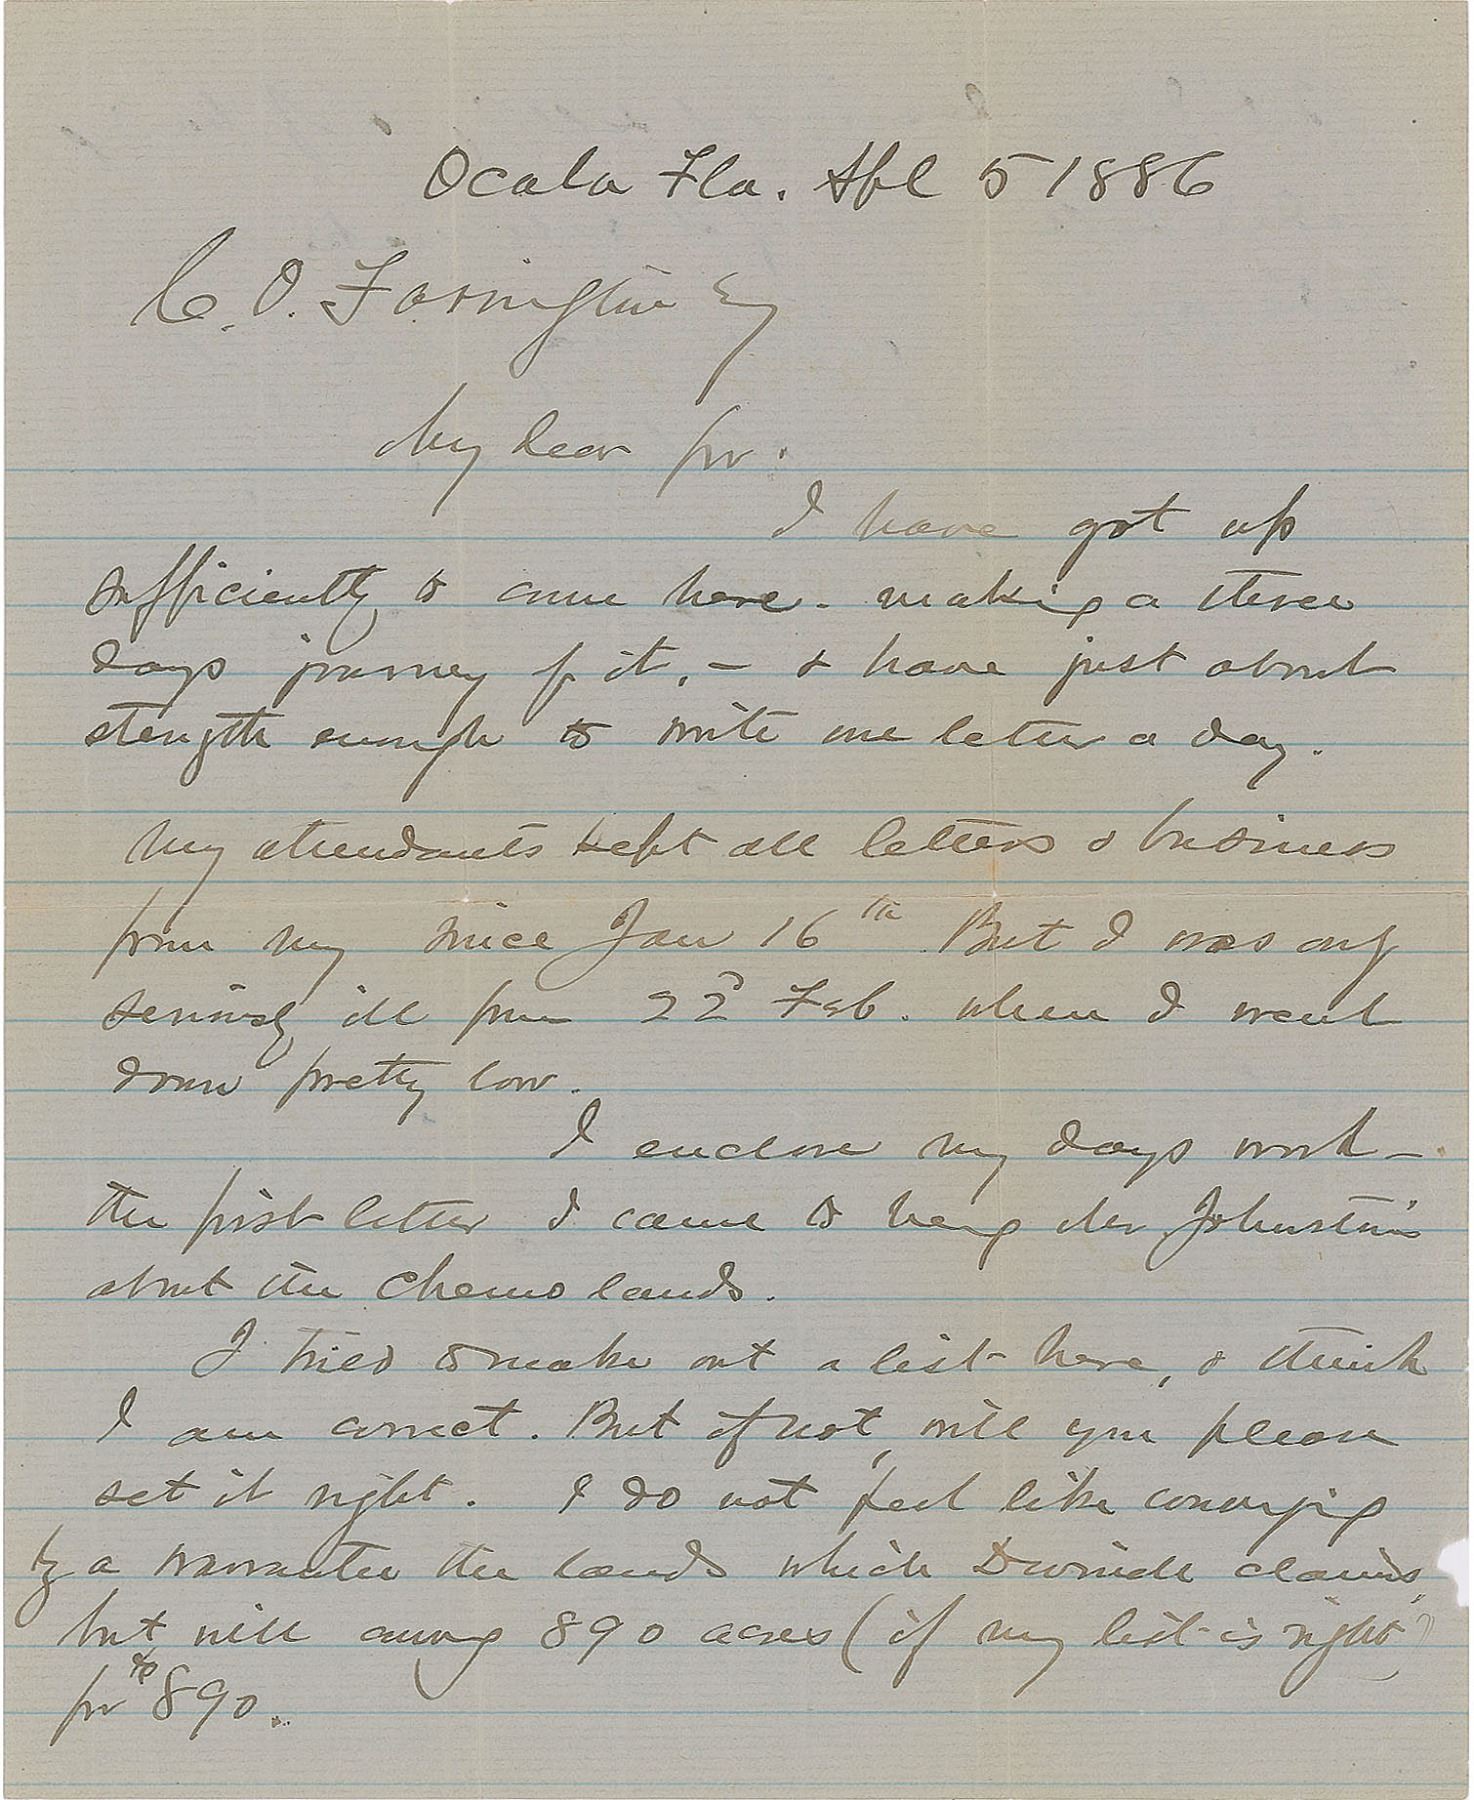 Ocala Fla. Apl 5 1886
C. O. Farrington Esq
My dear Sir.
I have got up
sufficiently to come here - making a three
days journey of it, - & have just about
stength enough to write one letter a day.
My attendants kept all letters & business
from my since Jan 16th But I was only
seriously ill from 22d Feb. when I went
down pretty low.
I enclose my days work -
the first letter I came to being Mr Johnston's
about the Chemo lands.
I tried to make out a list here, & think
I am correct. But if not, will you please
set it right. I do not feel like conveying
by a warrantee the lands which Dwinell claims,
but will convey 890 acres (if my list is right)
for $890.